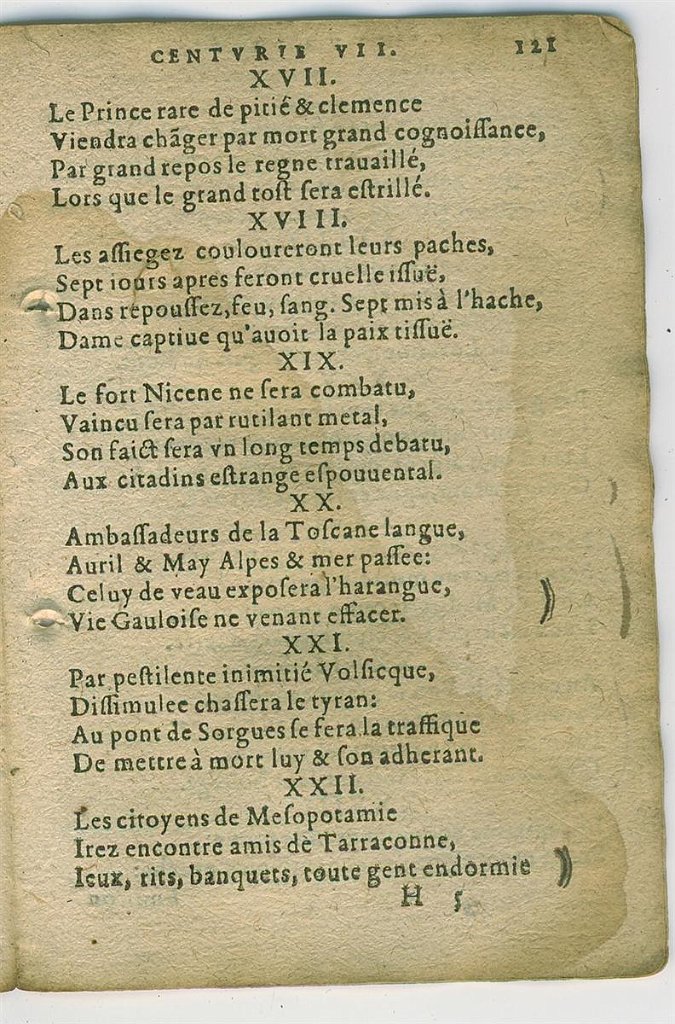 CENTVRIE VII. 121
XVII.
Le Prince rare de pitié & clemence
Viendra chãger par mort grand cognoiſſance,
Par grand repos le regne trauaillé,
Lors que le grand toſt ſera eſtrillé.
XVIII.
Les aſſiegez couloureront leurs paches,
Sept iours apres feront cruelle iſſuë,
Dans repouſſez, feu, ſang. Sept mis à l'hache,
Dame captiue qu'auoit la paix tiſſuë.
XIX.
Le fort Nicene ne ſera combatu,
Vaincu ſera par rutilant metal,
Son faict ſera vn long temps debatu,
Aux citadins eſtrange eſpouuental.
XX.
Ambaſſadeurs de la Toſcane langue,
Auril & May Alpes & mer paſſee:
Celuy de veau expoſera l'harangue,
Vie Gauloiſe ne venant effacer.
XXI.
Par peſtilente inimitié Volſicque,
Diſſimulee chaſſera le tyran:
Au pont de Sorgues ſe fera la traffique
De mettre à mort luy & ſon adherant.
XXII.
Les citoyens de Meſopotamie
Irez encontre amis de Tarraconne,
Ieux, rits, banquets, toute gent endormie
H 5